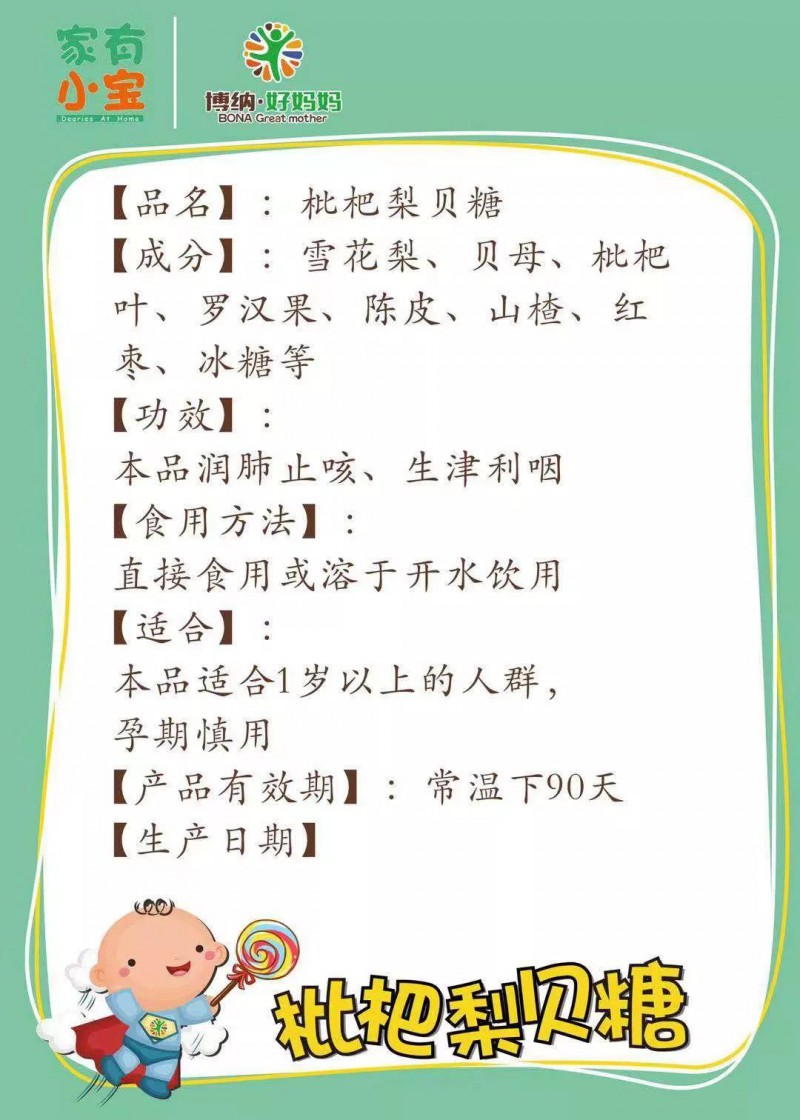 家有
小宝
Dearies At Home
博纳·好妈妈
BONA Great mother
【品名】：枇杷梨贝糖
【成分】：雪花梨、贝母、枇杷
叶、罗汉果、陈皮、山楂、红
枣、冰糖等
【功效】：
本品润肺止咳、生津利咽
【食用方法】：
直接食用或溶于开水饮用
【适合】：
本品适合1岁以上的人群，
孕期慎用
【产品有效期】：常温下90天
【生产日期】
枇杷梨贝糖